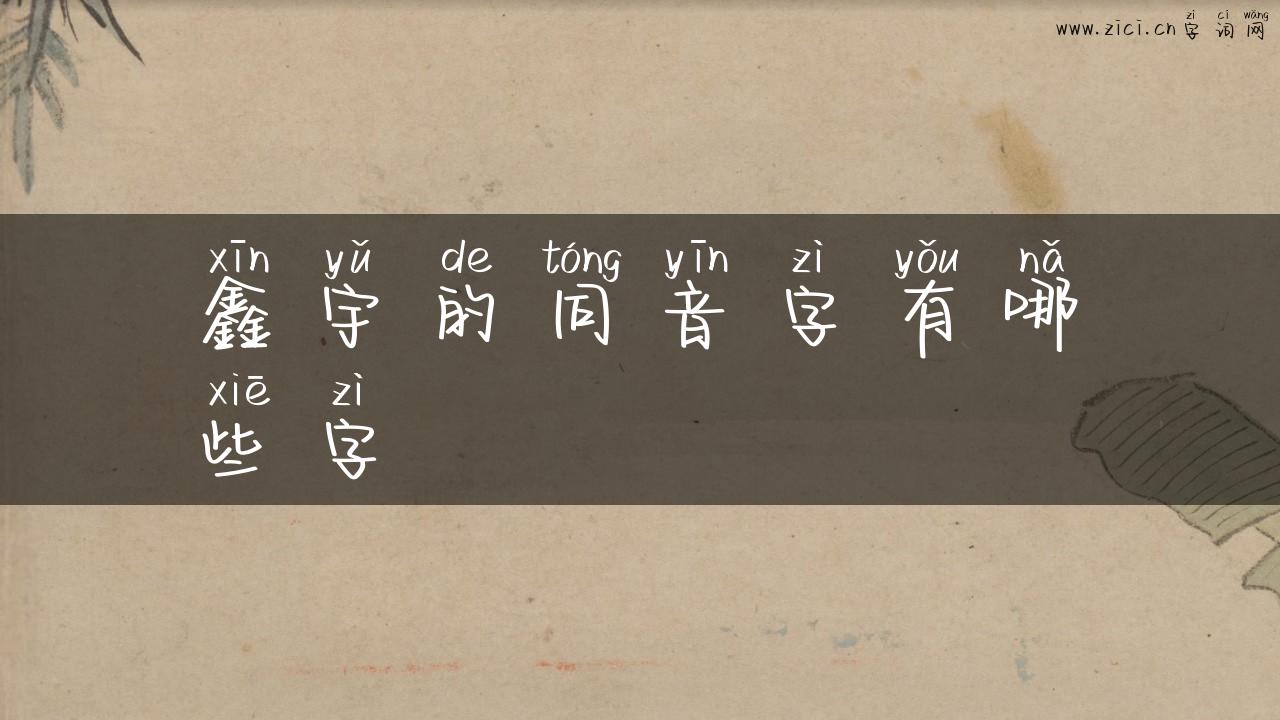 zì cí wǎng
www.zici.cn 字词网
xīn yǔ de tóng yīn zì yǒu nǎ
鑫宇的同音字有哪
xiē zì
些字